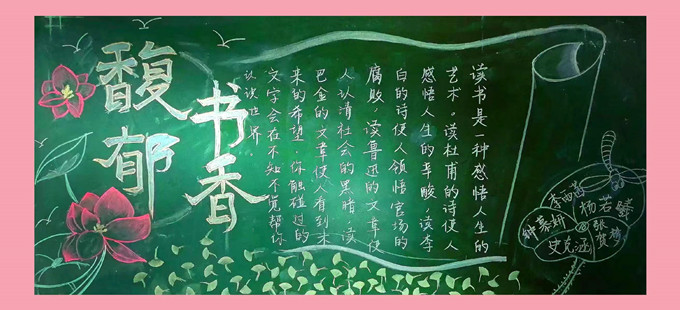 馥郁
书香
读书是一种感悟人生的
艺术。读杜甫的诗使人
感悟人生的辛酸,读李
白的诗使人领悟官场的
腐败,读鲁迅的文章使
人认清社会的黑暗,读
巴金的文章使人有到未
来的希望,你触碰过的
文字会在不知不觉帮你
认识世界
钟慕妍
杨若